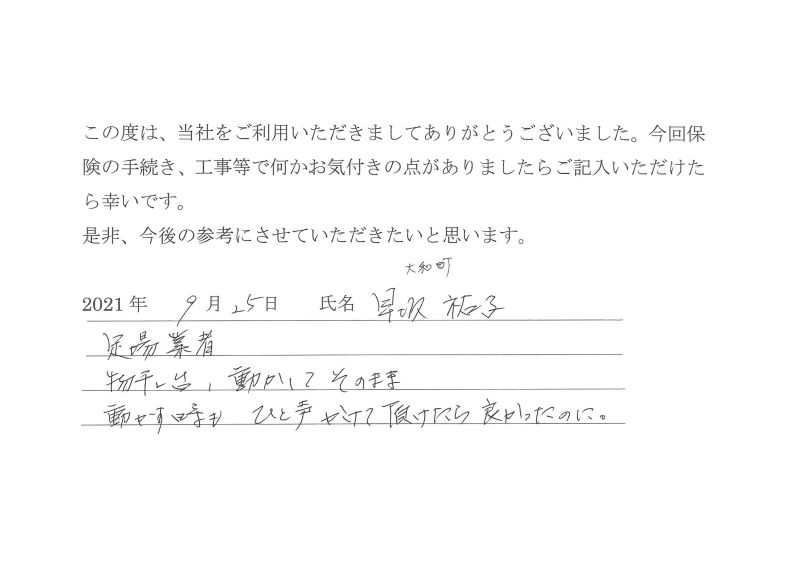 この度は、当社をご利用いただきましてありがとうございました。今回保
険の手続き、工事等で何かお気付きの点がありましたらご記入いただけた
ら幸いです。
是非、今後の参考にさせていただきたいと思います。
大和町
2021 年 9 月 25 日 氏名 早坂 祐子
足場業者
物干し台、動かして そのまま
動かす時も ひと声 かけて 頂けたら 良かったのに。